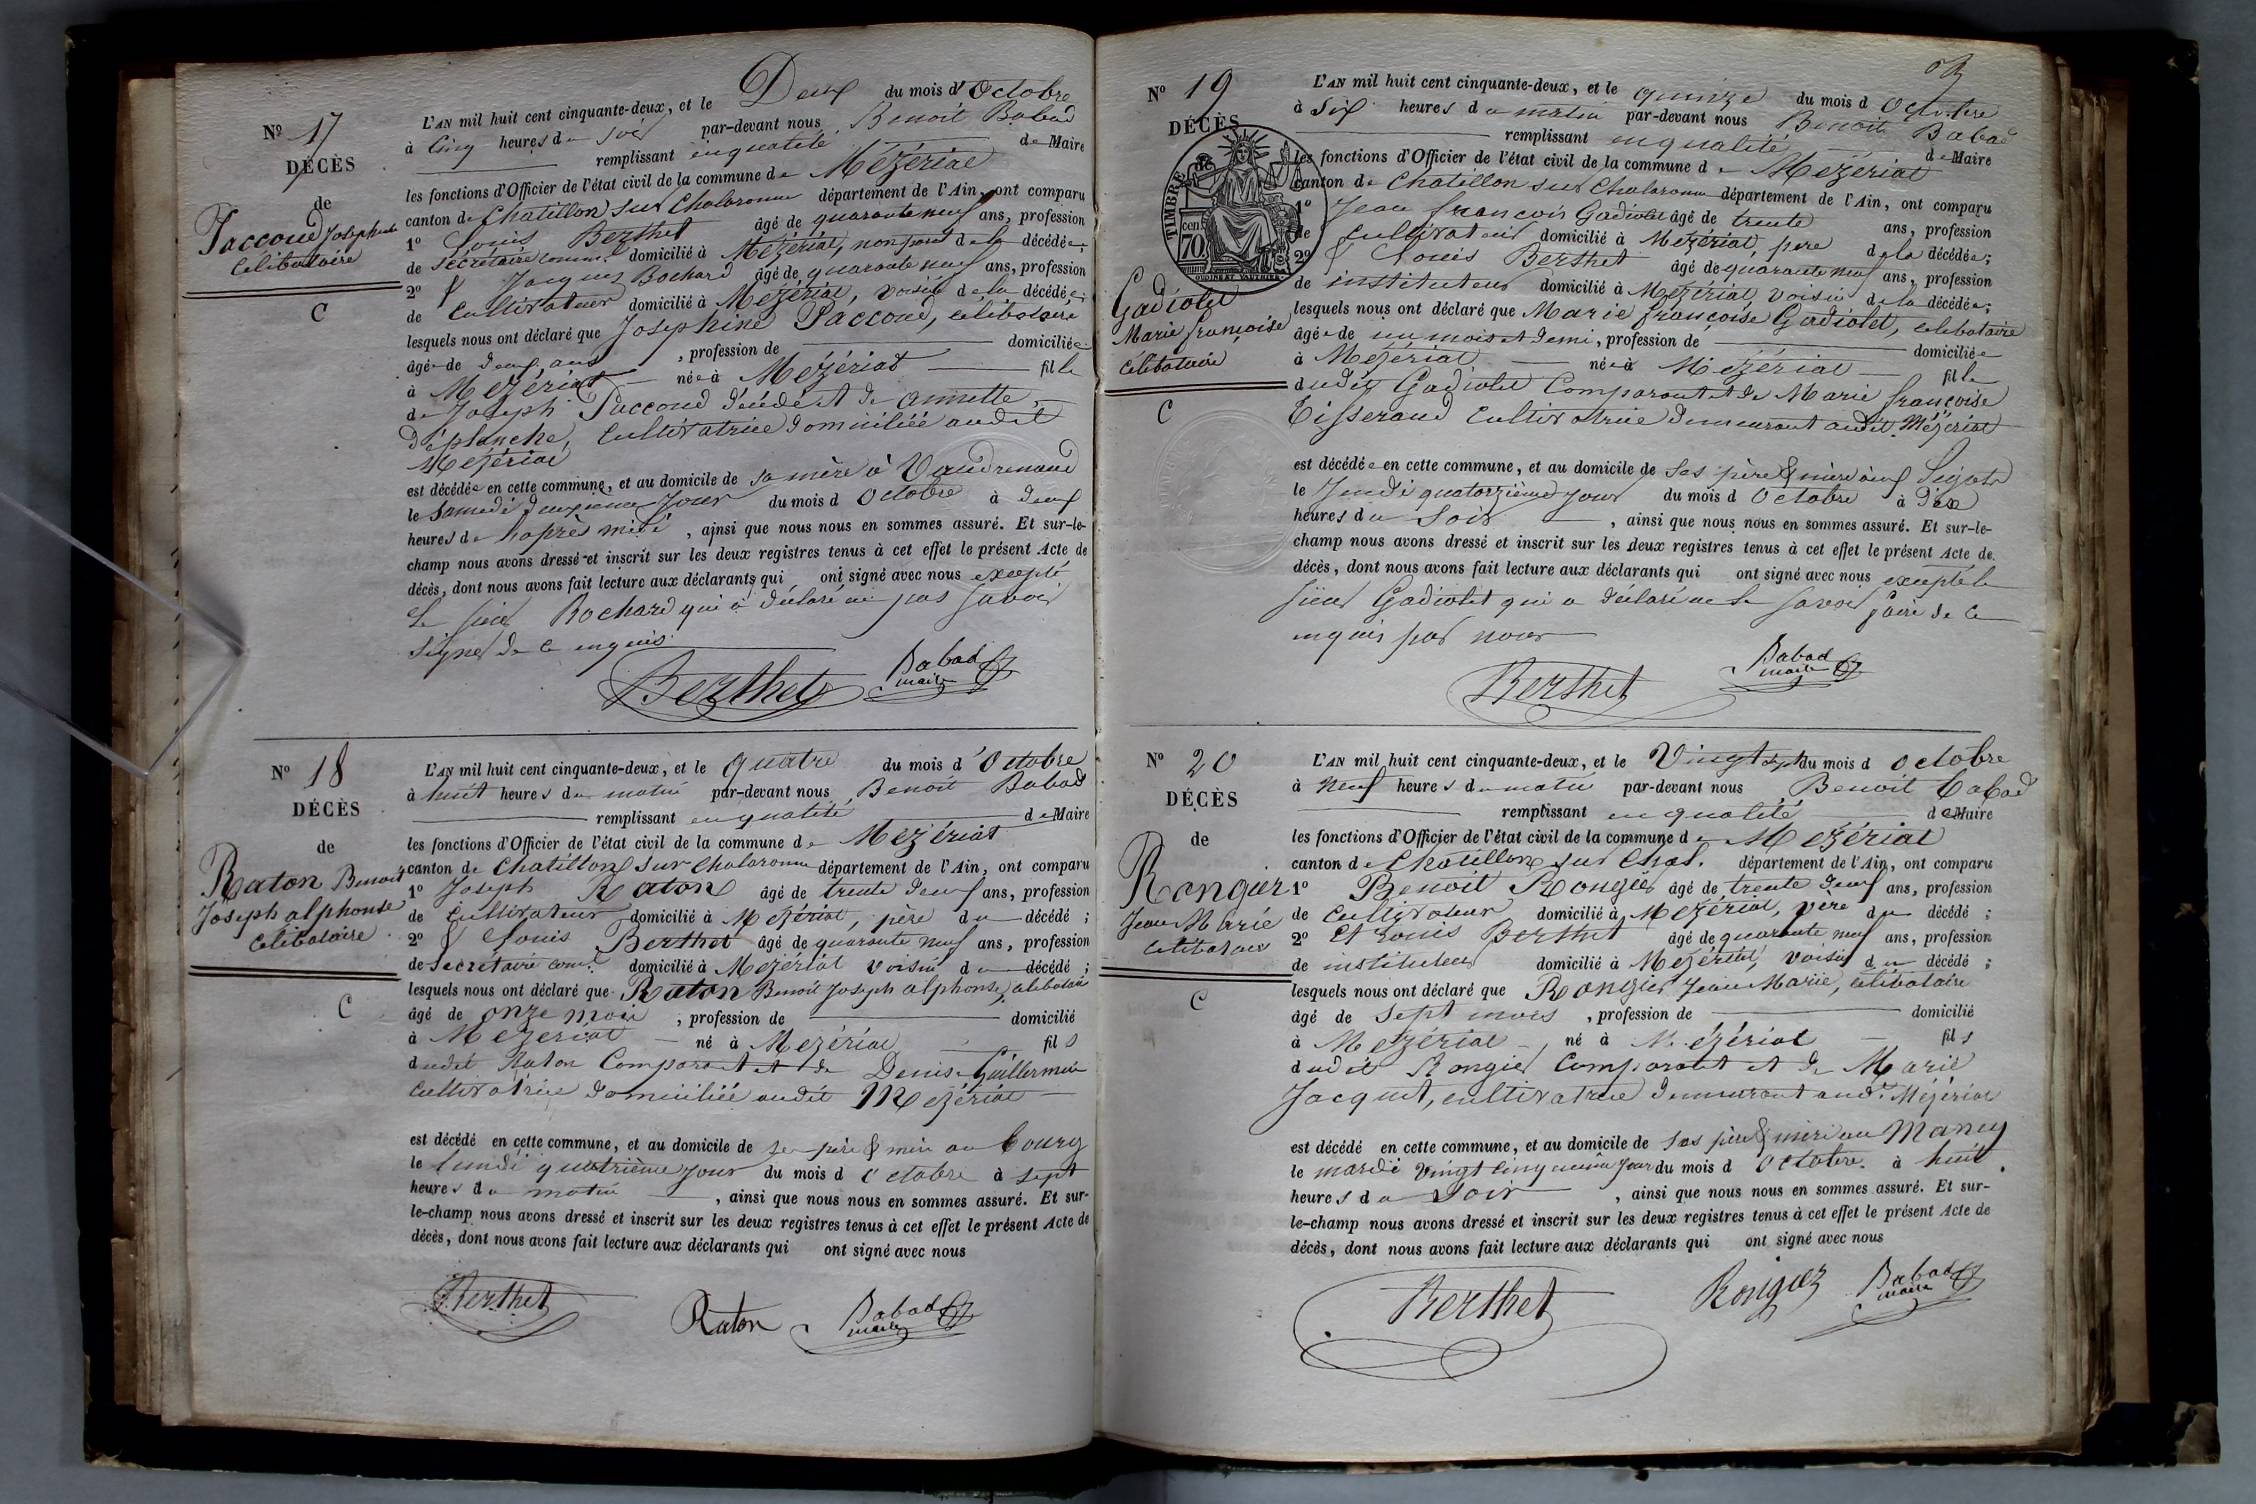 N° 17
DÉCÈS
de
Paccoud Josephine
célibataire
C
L'AN mil huit cent cinquante-deux, et le Deux du mois d'Octobre
à Cinq heures du soir par-devant nous Benoit Babad
remplissant en qualité de Maire
les fonctions d'Officier de l'état civil de la commune de Mézériat
canton de Chatillon sur Chalaronne département de l'Ain, ont comparu
1° Louis Berthet âgé de quarante neuf ans, profession
de secrétaire comm. domicilié à Mézériat, non parent de la décédée;
2° & Jacques Bochard âgé de quarante neuf ans, profession
de Cultivateur domicilié à Mézériat, voisin de la décédée;
lesquels nous ont déclaré que Josephine Paccoud, célibataire
âgée de deux ans, profession de domiciliée
à Mézériat née à Mézériat fille
de Joseph Paccoud décédé et de annette
Déplanche, Cultivatrice domiciliée audit
Mézériat
est décédée en cette commune, et au domicile de sa mère à Vaudrenand
le Samedi deuxième Jour du mois d Octobre à deux
heures de l'après midi, ainsi que nous nous en sommes assuré. Et sur-le-
champ nous avons dressé et inscrit sur les deux registres tenus à cet effet le présent Acte de
décès, dont nous avons fait lecture aux déclarants qui ont signé avec nous excepté
le sieur Bochard qui a déclaré ne pas savoir
signer de ce enquis
Berthet Babad
maire
N° 18
DÉCÈS
de
Raton Benoit
Joseph alphonse
célibataire
C
L'AN mil huit cent cinquante-deux, et le quatre du mois d'Octobre
à huit heures du matin par-devant nous Benoit Babad
remplissant en qualité de Maire
les fonctions d'Officier de l'état civil de la commune de Mézériat
canton de Chatillon sur Chalaronne département de l'Ain, ont comparu
1° Joseph Raton âgé de trente deux ans, profession
de Cultivateur domicilié à Mézériat, père du décédé;
2° & Louis Berthet âgé de quarante neuf ans, profession
de secrétaire com. domicilié à Mézériat voisin du décédé;
lesquels nous ont déclaré que Raton Benoit Joseph alphonse, célibataire
âgé de onze mois, profession de domicilié
à Mézériat né à Mézériat fils
dudit Raton Comparant et de Denise Guillermin
Cultivatrice domiciliée audit Mézériat
est décédé en cette commune, et au domicile de ses père & mère au bourg
le lundi quatrième jour du mois d Octobre à sept
heures du matin, ainsi que nous nous en sommes assuré. Et sur-
le-champ nous avons dressé et inscrit sur les deux registres tenus à cet effet le présent Acte de
décès, dont nous avons fait lecture aux déclarants qui ont signé avec nous
Berthet Raton Babad
maire
N° 19
DÉCÈS
TIMBRE
70
cent
OUDINÉ ET VAUTHIER
Gadiolet
Marie françoise
célibataire
C
L'AN mil huit cent cinquante-deux, et le quinze du mois d Octobre
à Six heures du matin par-devant nous Benoit Babad
remplissant en qualité de Maire
les fonctions d'Officier de l'état civil de la commune de Mézériat
canton de Chatillon sur Chalaronne département de l'Ain, ont comparu
1° Jean françois Gadiolet âgé de trente ans, profession
de Cultivateur domicilié à Mézériat, père de la décédée;
2° & Louis Berthet âgé de quarante neuf ans, profession
de instituteur domicilié à Mézériat, voisin de la décédée;
lesquels nous ont déclaré que Marie françoise Gadiolet, célibataire
âgée de un mois et demi, profession de domiciliée
à Mézériat née à Mézériat fille
dudit Gadiolet Comparant et de Marie françoise
Tisserand Cultivatrice demeurant audit Mézériat
est décédée en cette commune, et au domicile de ses père & mère aux
le Jeudi quatorzième jour du mois d Octobre à dix
heures du Soir, ainsi que nous nous en sommes assuré. Et sur-le-
champ nous avons dressé et inscrit sur les deux registres tenus à cet effet le présent Acte de
décès, dont nous avons fait lecture aux déclarants qui ont signé avec nous excepté le
sieur Gadiolet qui a déclaré ne le savoir faire de ce
enquis par nous
Berthet Babad
maire
N° 20
DÉCÈS
de
Rongier
Jean Marie
célibataire
C
L'AN mil huit cent cinquante-deux, et le Vingt sept du mois d Octobre
à Neuf heures du matin par-devant nous Benoit Babad
remplissant en qualité de Maire
les fonctions d'Officier de l'état civil de la commune de Mézériat
canton de Chatillon sur Chal. département de l'Ain, ont comparu
1° Benoit Rongier âgé de trente deux ans, profession
de Cultivateur domicilié à Mézériat, père du décédé;
2° Et Louis Berthet âgé de quarante neuf ans, profession
de instituteur domicilié à Mézériat, voisin du décédé;
lesquels nous ont déclaré que Rongier Jean Marie, célibataire
âgé de Sept mois, profession de domicilié
à Mézériat, né à Mézériat fils
dudit Rongier Comparant et de Marie
Jacquet, cultivatrice demeurant aud.t Mézériat
est décédé en cette commune, et au domicile de ses père & mère au Maney
le mardi Vingt Cinquième Jour du mois d Octobre à huit
heures du Soir, ainsi que nous nous en sommes assuré. Et sur-
le-champ nous avons dressé et inscrit sur les deux registres tenus à cet effet le présent Acte de
décès, dont nous avons fait lecture aux déclarants qui ont signé avec nous
Berthet Rongier Babad
maire